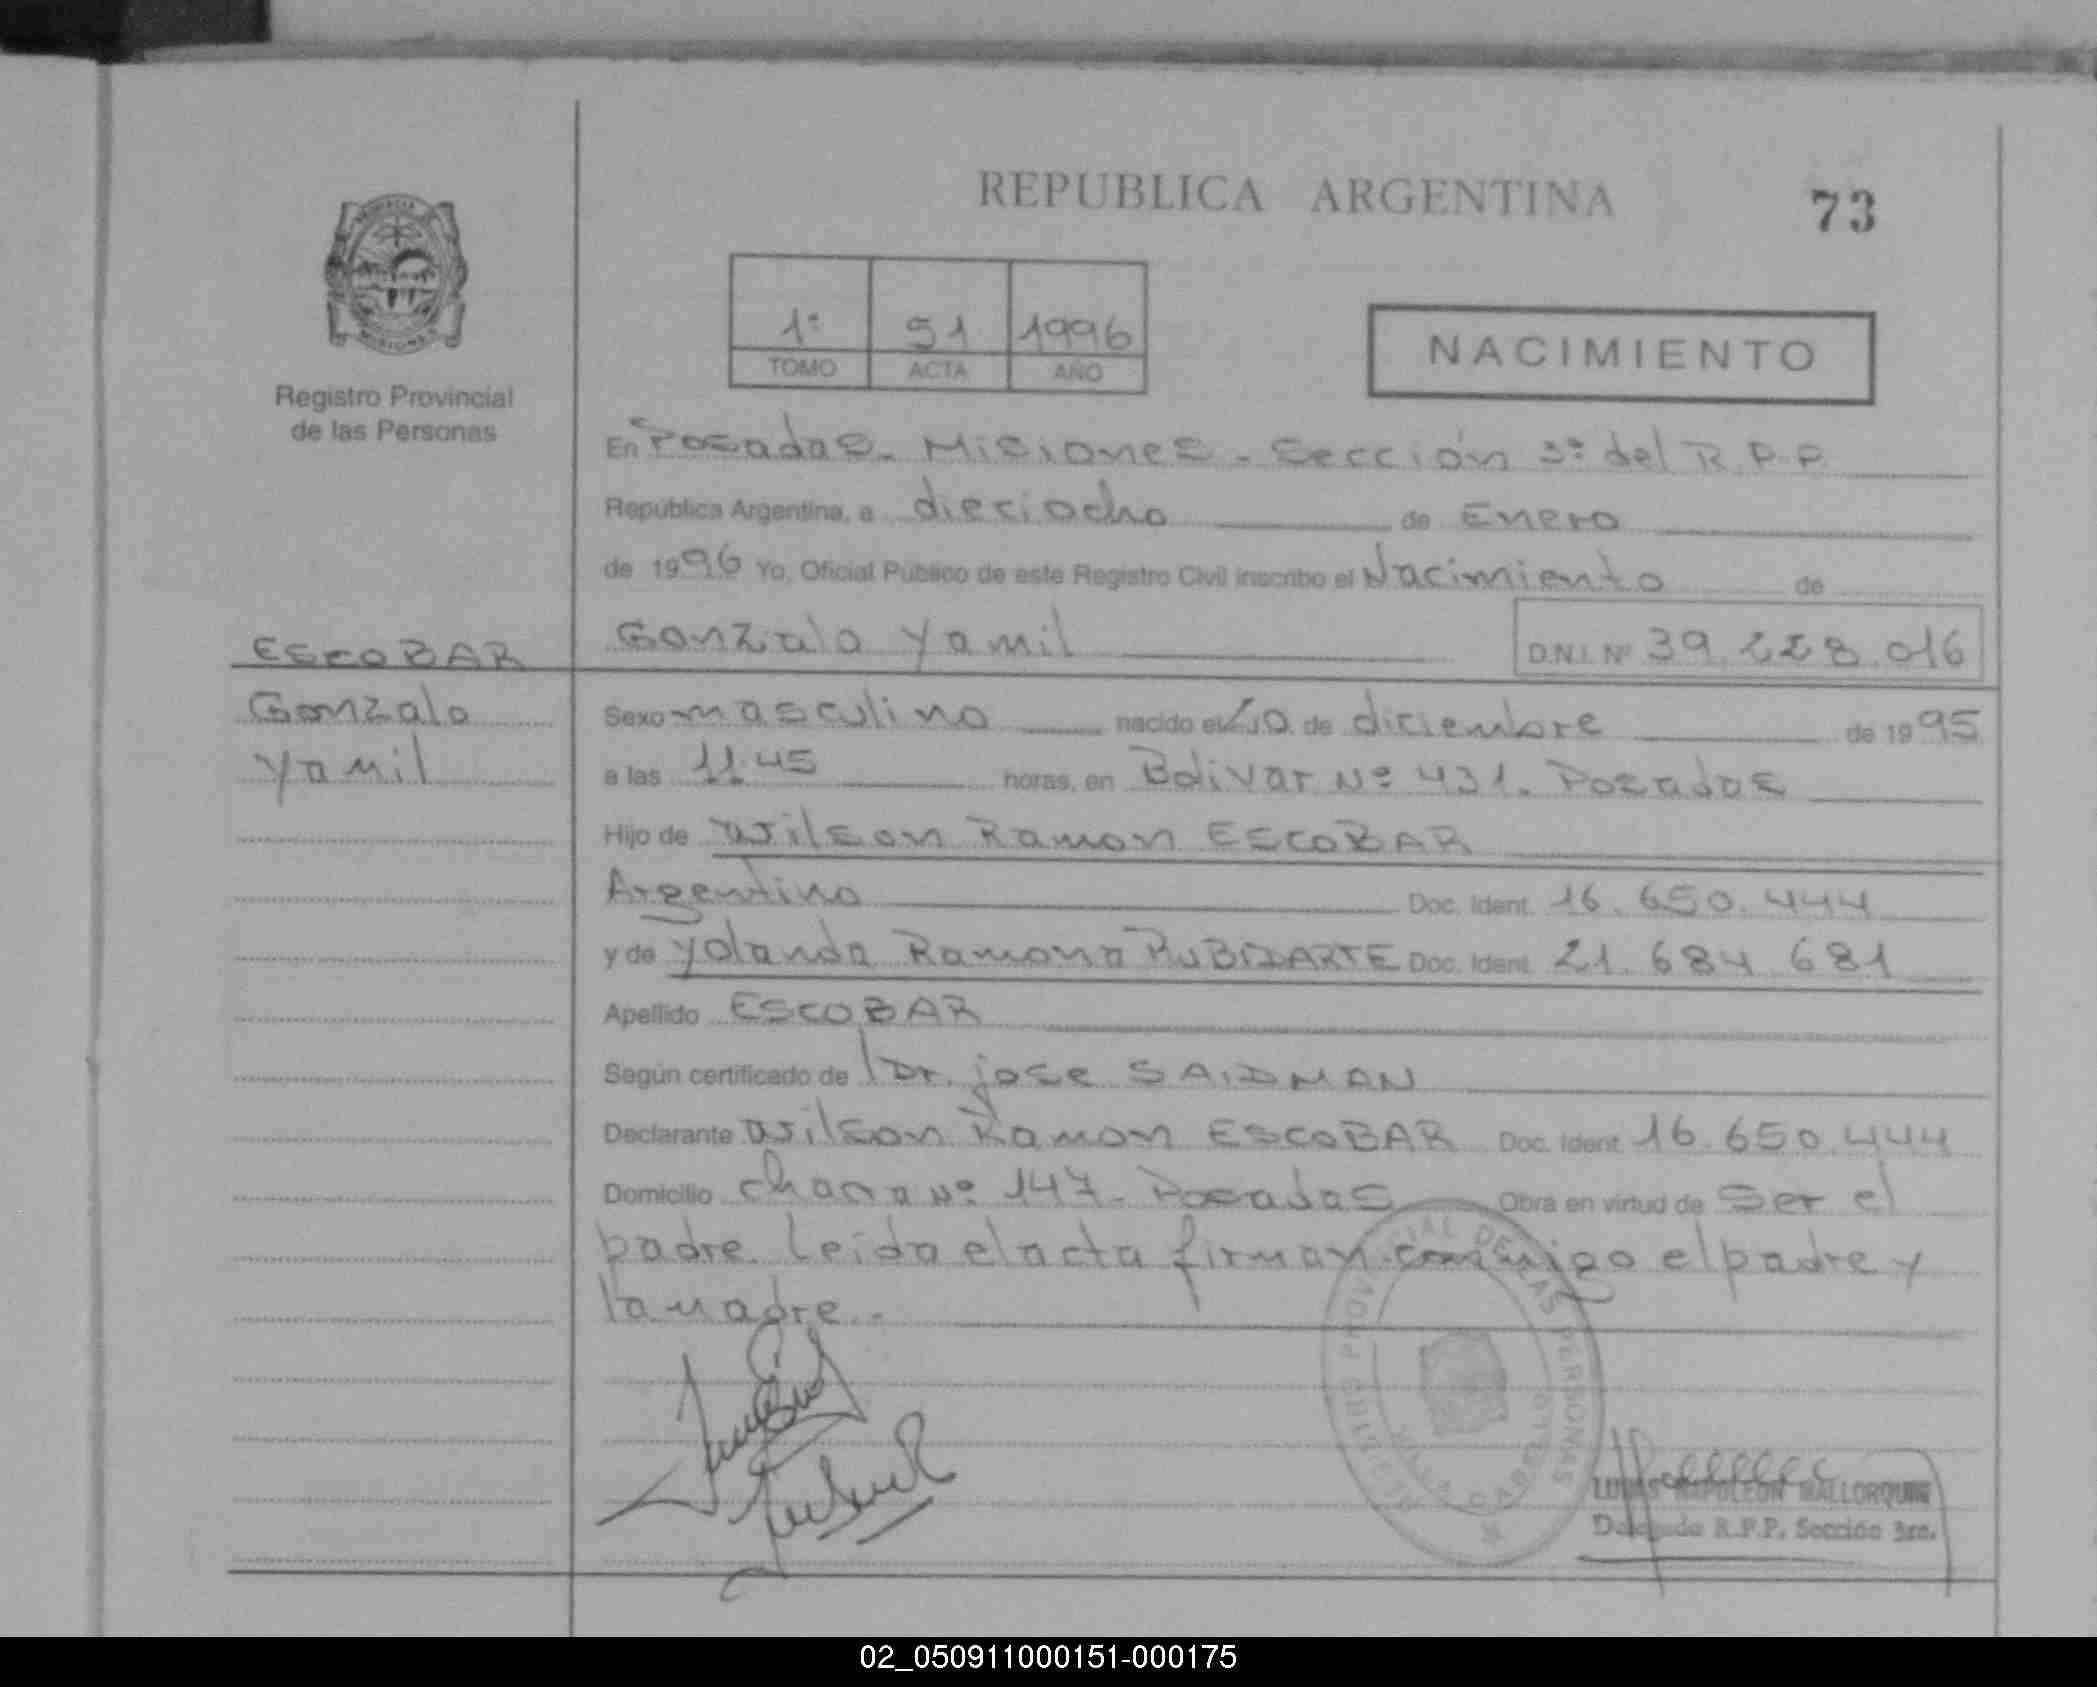 REPUBLICA ARGENTINA
73
PROVINCIA DE
MISIONES
Registro Provincial
de las Personas
1º 51 1996
TOMO ACTA AÑO
NACIMIENTO
En Posadas - Misiones - Sección 3º del R.P.P.
República Argentina, a dieciocho de Enero
de 1996 Yo, Oficial Público de este Registro Civil inscribo el Nacimiento de
Gonzalo Yamil D.N.I. Nº 39.228.016
ESCOBAR
Gonzalo
Yamil
Sexo masculino nacido el 20 de diciembre de 1995
a las 11.45 horas, en Bolivar Nº 431. Posadas
Hijo de Wilson Ramon ESCOBAR
Argentino Doc. Ident. 16.650.444
y de Yolanda Ramona RUBIDARTE Doc. Ident. 21.684.681
Apellido ESCOBAR
Según certificado de Dr. jose SAIDMAN
Declarante Wilson Ramon ESCOBAR Doc. Ident. 16.650.444
Domicilio chacra Nº 147. Posadas Obra en virtud de Ser el
padre. Leida el acta firman conmigo el padre y
la madre.-
REGISTRO PROVINCIAL DE LAS PERSONAS
VILLA CABELLO
NAPOLEON MALLORQUIN
Delegado R.P.P. Sección 3ra.
02_050911000151-000175